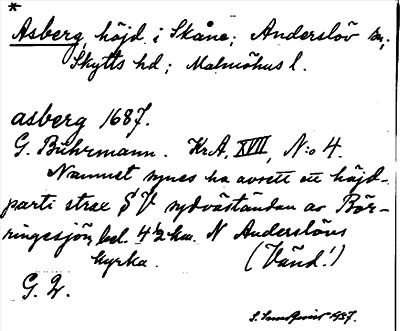 *
Asberg, höjd i Skåne; Anderslöv sn;
Skytts hd; Malmöhus l.
asberg 1687.
G. Buhrmann. KrA, XVII, N:o 4.
Namnet synes ha avsett ett höjd-
parti strax S V sydväständan av Bör-
ringesjön, bel. 4½ km. N Anderslövs
kyrka. (Vänd!)
G. 2.
S. Sundqvist 1937.